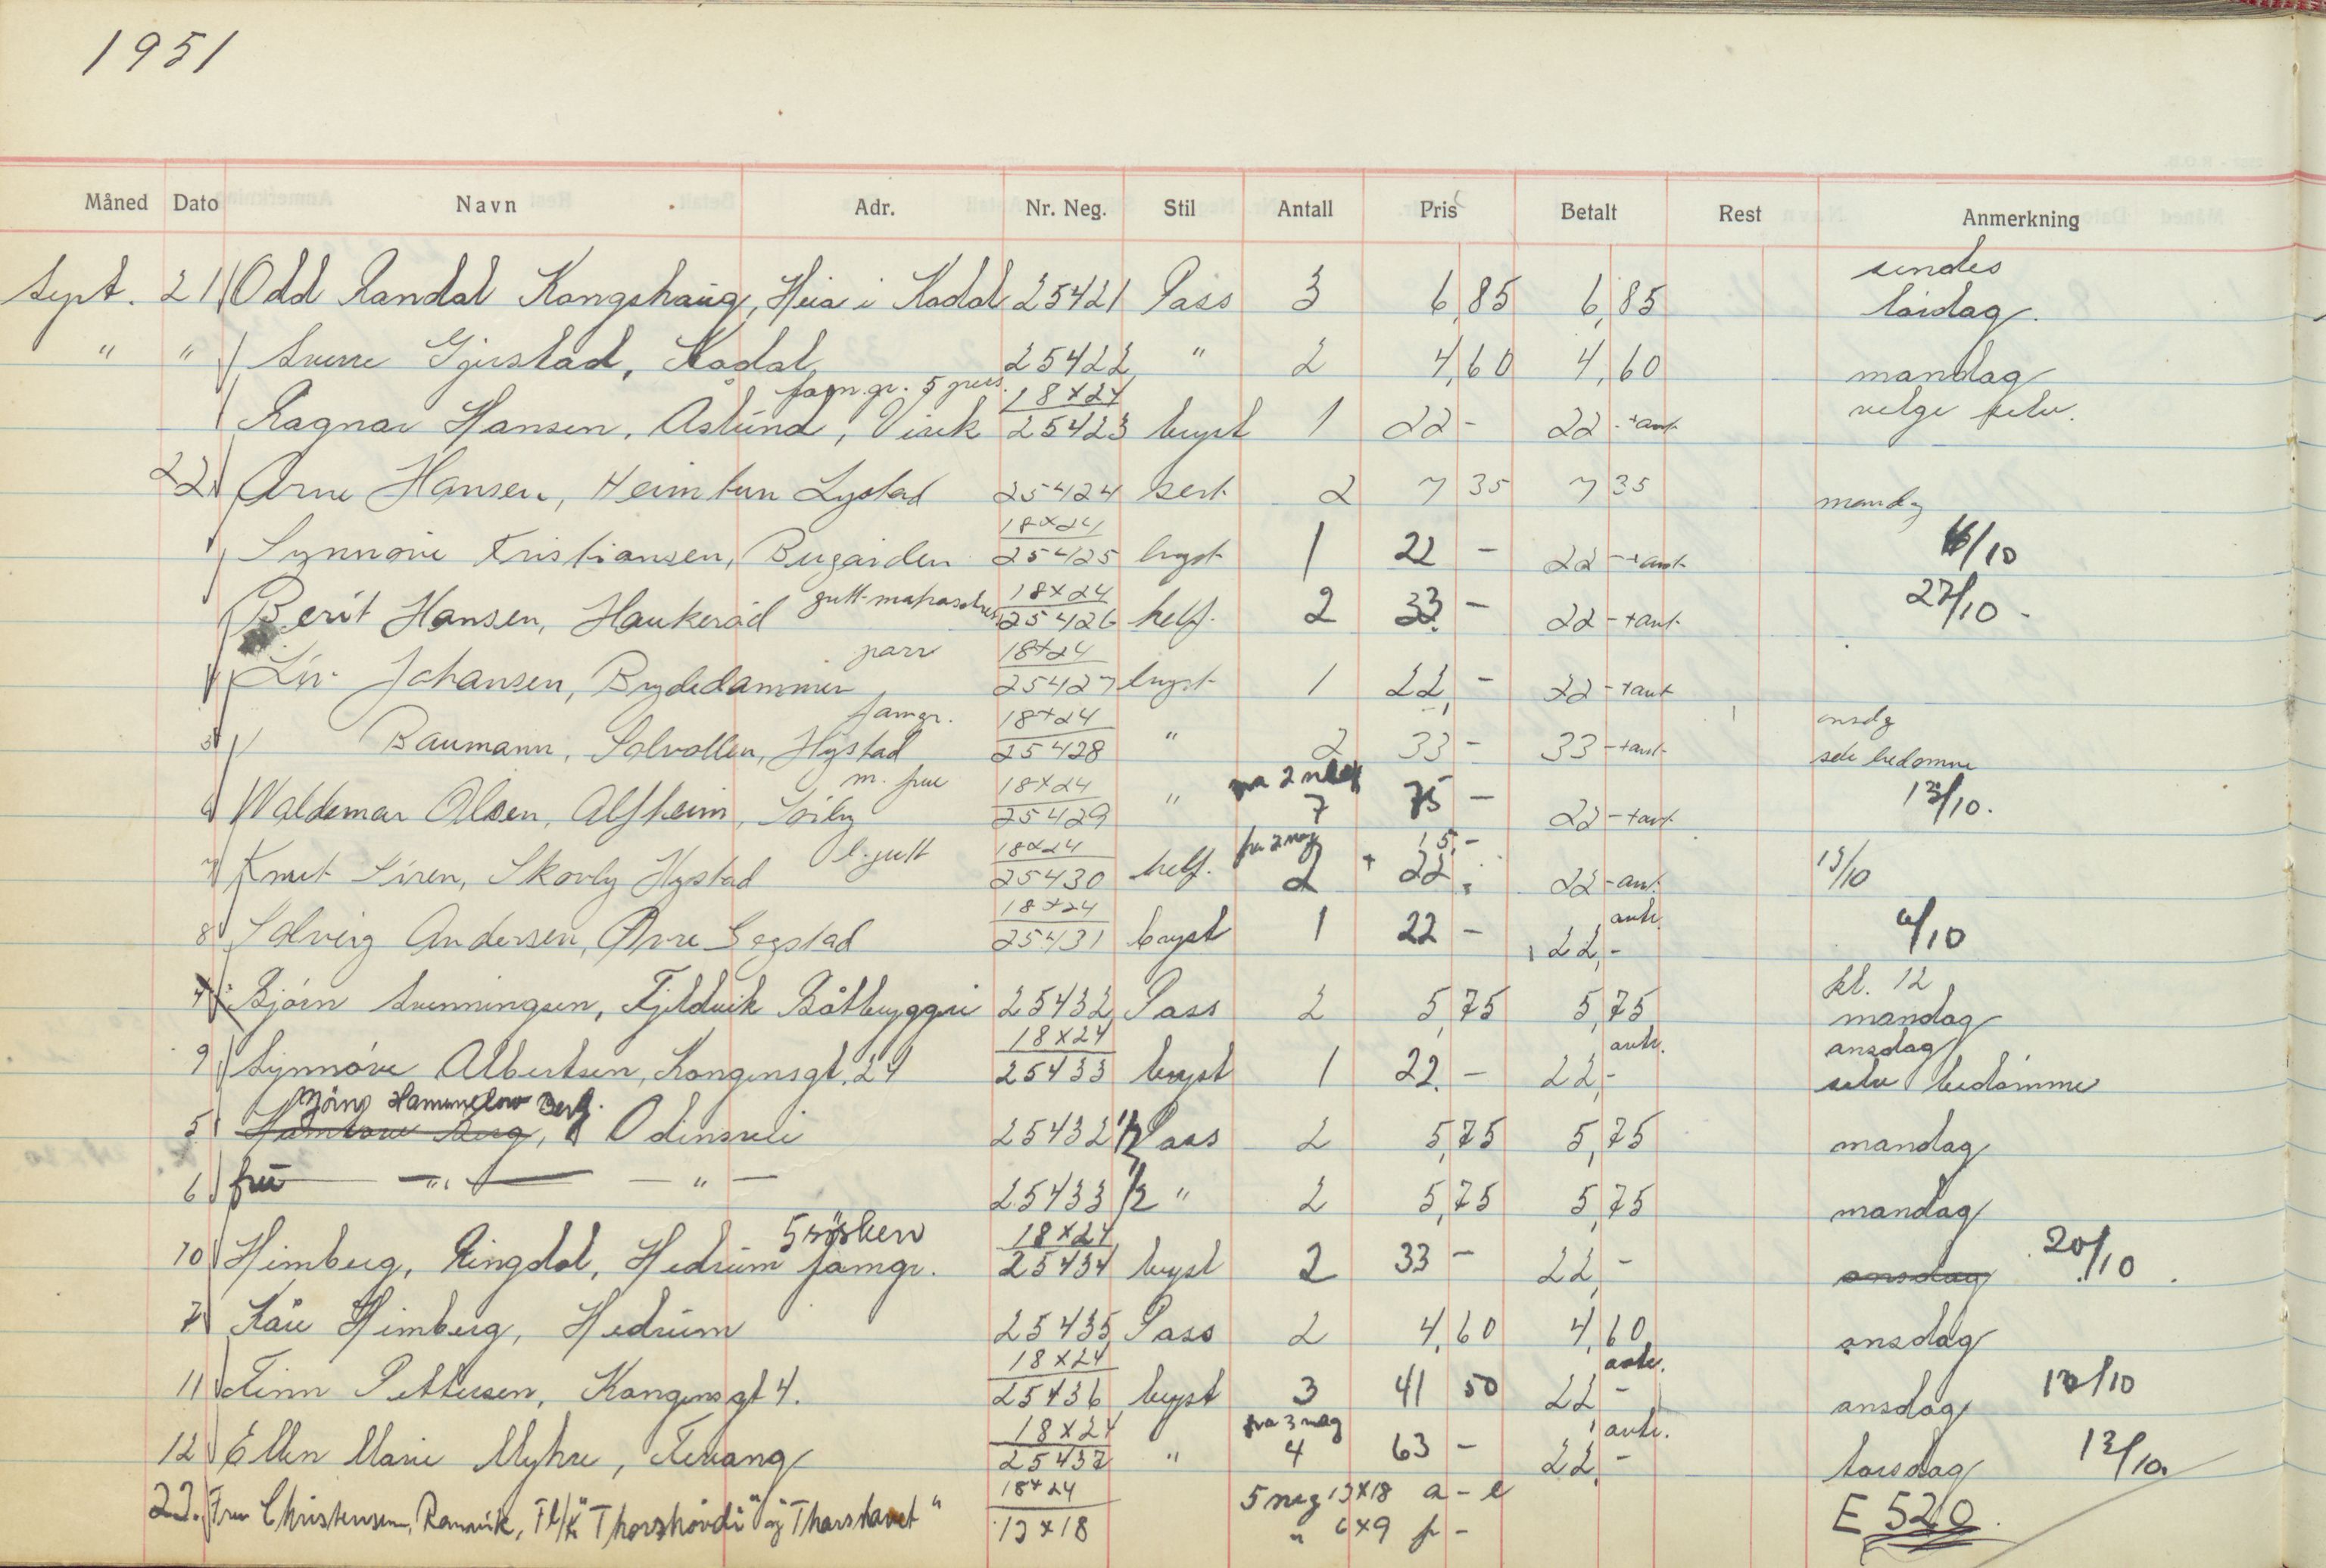 1951
Måned Dato Navn Adr. Nr. Neg. Stil Antall Pris Betalt Rest Anmerkning
Sept. 21 Odd Randal Kongshaug, Heia i Kodal 25421 Pass 3 6,85 6,85 sendes lördag.
" " Sverre Gjerstad, Kodal 25422 " 2 4,60 4,60 mandag
fam.gr. 5 pers. 18x24
Ragnar Hansen, Åslund, Virik 25423 bryst 1 22 - 22 - +ant. velge selv.
22 Arne Hansen, Heimtun Lystad 25424 sert. 2 7 35 7 35 mandg
18x24
Synnøve Kristiansen, Bugården 25425 bryst 1 22 - 22 - +ant. 6/10
18x24
Berit Hansen, Haukerød 25426 helf. 2 33 - 22 - +ant. 27/10 -
parr 18x24
Liv Johansen, Brydedammen 25427 bryst 1 22,- 22 - +ant
famgr. 18x24 onsdg
Baumann, Solvollen, Hystad 25428 " 2 33 - 33 - +ant. selv bedømme
m. frue 18x24
6 Waldemar Olsen, Alfheim, Söeby 25429 " 7 75 - 22 - +ant. 13/10.
l. gutt 18x24 fra 2 neg 15,-
7 Knut Siren, Skovly Hystad 25430 helf. 2 + 22 22 - ant. 13/10
18x24 antr.
8 Solveig Andersen, Øvre Gogstad 25431 bryst 1 22 - 22,- 6/10
kl. 12
4 Bjørn Svenningsen, Fjeldvik Båtbyggeri 25432 Pass 2 5,75 5,75 mandag
18x24 antr. onsdag
9 Synnöve Albertsen, Kongensgt. 24 25433 bryst 1 22. - 22,- selv bedömme
Berg.
5 Odinsvei 25432 1/2 Pass 2 5,75 5,75 mandag
6 fru — " — — " — 25433 1/2 " 2 5,75 5,75 mandag
5 søsken 18x24 20/10.
10 Himberg, Ringdal, Hedrum famgr. 25434 bryst 2 33 - 22,- onsdag
7 Kåre Himberg, Hedrum 25435 Pass 2 4,60 4,60 onsdag
18x24 antr.
11 Finn Pettersen, Kongensgt 4. 25436 bryst 3 41 50 22,- onsdag 10/10
18x24 fra 3 neg antr.
12 Ellen Marie Myhre, Tenvang 25437 " 4 63 - 22,- torsdag 13/10.
18x24 5 neg 13x18 a - e
22. Fru Christensen, Ramvik, Fl/k "Thorshövdi" og "Thorshavet" 13x18 " 6x9 f - E 520.